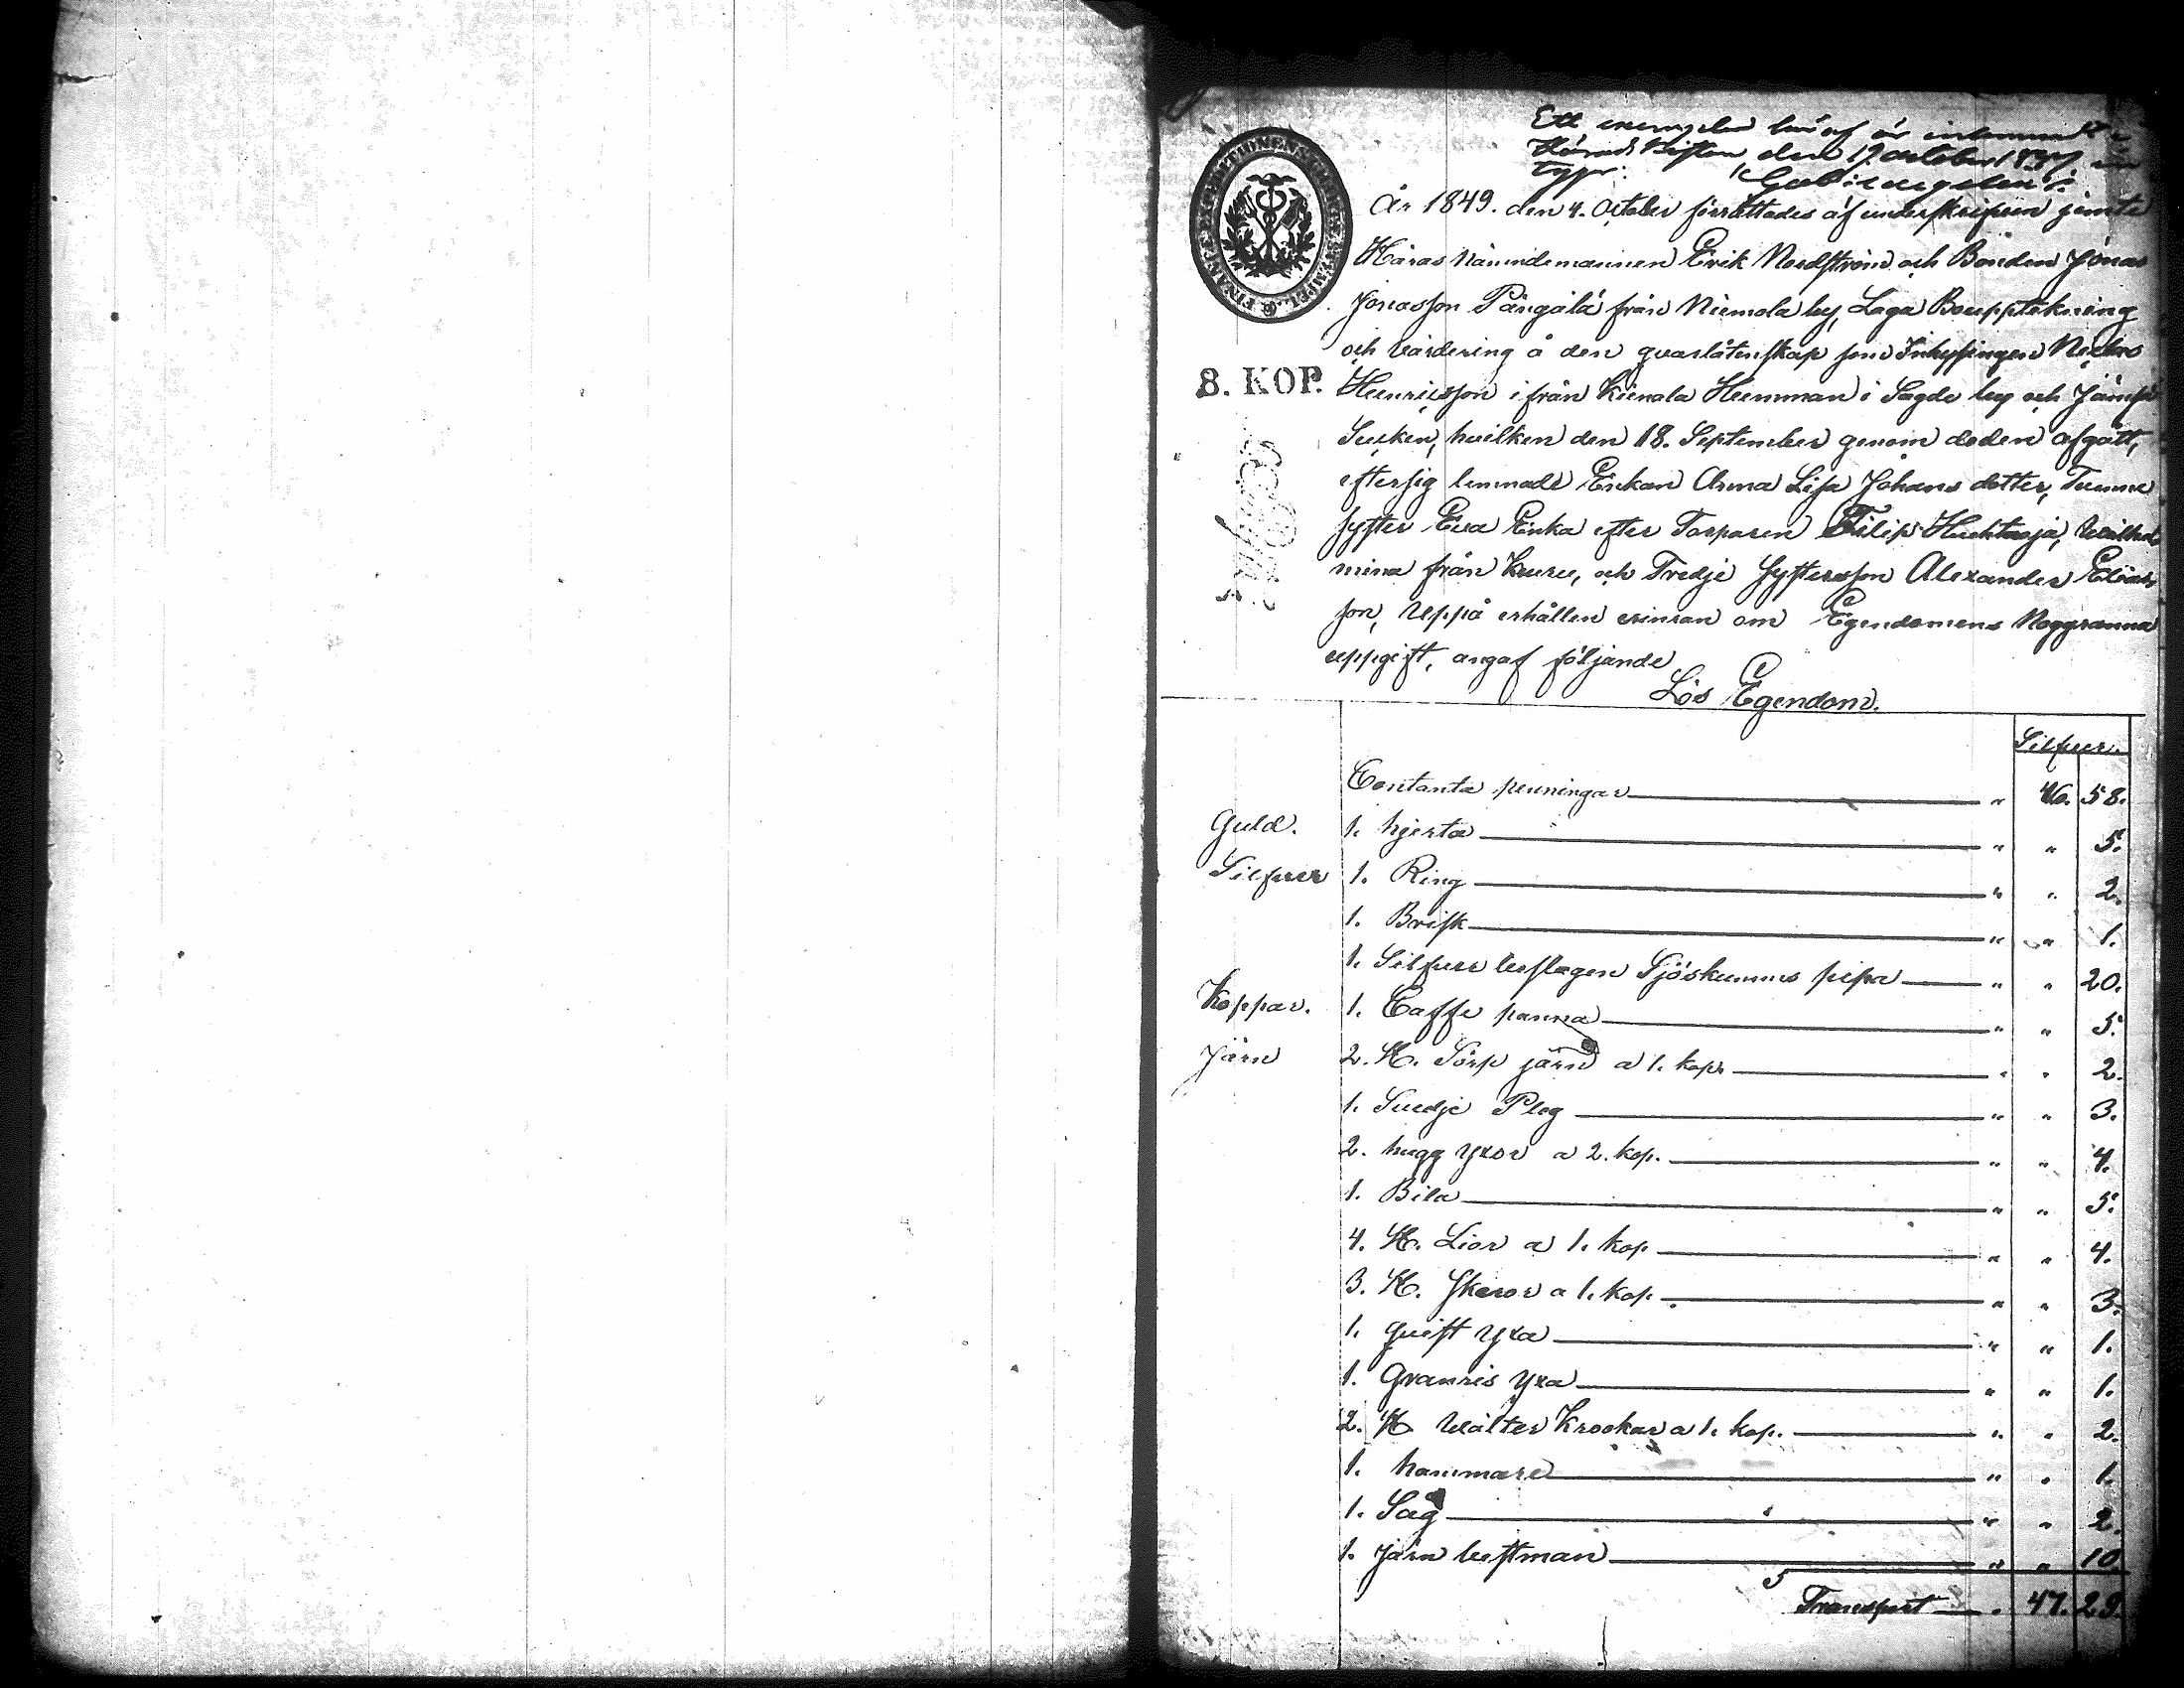 Ett exemplar häraf är inlemnadt
Härads Rätten den 17 october 1849
År 1849. den 4. October förrättades af underskrifven jemte
Härads nämndemannen Erik Nordström och Bonden Jonas
Jonasson Pängälä från Niemola by, Laga Bouppteckning
och värdering å den qvarlåtenskap som Inhysingen
8. KOP. Henricsson ifrån Kiimala Hemman i Sagde by och
Socken, hvilken den 18. September genom döden afgått,
efter sig lemnade Enkan Anna Lisa Johans dotter,
syster Eva Enka efter Torparen Filip Huhtaoja, Wilhel
mina från Kuru, och Tredje systerson Alexander Elias
son, Uppå erhållen erinran om Egendomens Noggranna
uppgift, angaf följande
Lös Egendom.
Silfver.
Contanta penningar " 46. 58.
Guld. 1. hjerta " " 5.
Silfver 1. Ring " " 2.
1. Brisk " " 1.
1. Silfver beslagen Sjöskumms pipa " " 20.
Koppar. 1. Caffe panna " " 5.
Järn 2. St. Sörp järn a 1. kop. " " 2.
1. Svedje Plog " " 3.
2. hugg yxor a 2. kop. " " 4.
1. Bila " " 5.
4. St. Lior a 1. kop " " 4.
3. St. skeror a 1. kop. " " 3.
1. qvist yxa " " 1.
1. Granris yxa " " 1.
2. St Wälter Krokar a 1. kop. " " 2.
1. hammare " " 1.
1. Såg " " 2.
1. järn bestman " " 10.
Transport " 47. 29.